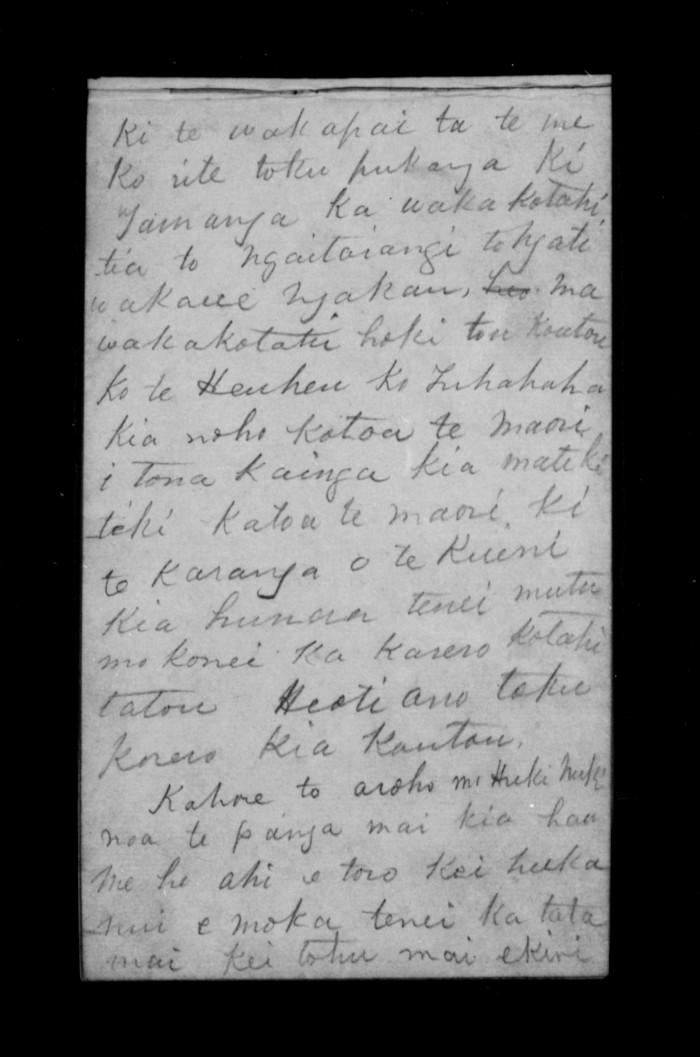 Ki te wakapai ta te me
Ko rite toku pukanga Ki
Tauranga Ka waka Kotahi
tia to Ngaitaiangi to Ngati
wakaue Ngakau, ma
wakakotahi hoki tou Koutou
Ko te Heuheu Ko Tuhahaha
Kia noho Katoa te maori
i tona Kainga Kia mateki
teki Katoa te maori, Ki
te Karanga o te Kueni
Kia hunaa tenei mutu
mo konei Ka Karero Kotahi
tatou Heoti ano toku
Korero Kia Koutou.
Kahore to aroho mo Huki huki
noa te panga mai kia hau
me he ahi e toro Kei huka
nui e moka tenei Ka tata
mai Kei tohu mai ekiri